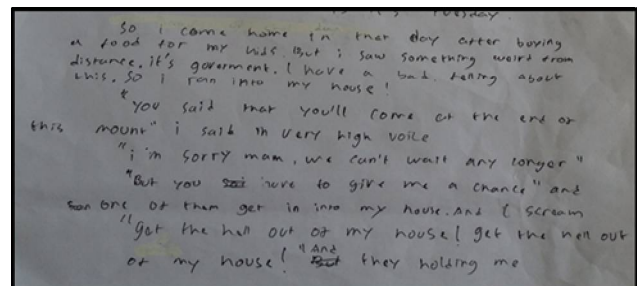 Tuesday.
So i come home in that day after buying
a food for my kids. But i saw something weird from
distance. it's goverment. I have a bad. felling about
this. So i ran into my house!
"You said that you'll come at the end of
this mount" i said in very high voice
"i'm sorry mam, we can't wait any longer"
"But you have to give me a chance" and
son one of them get in into my house. And I scream
"Get the hell out of my house! get the hell out
of my house!" And they holding me